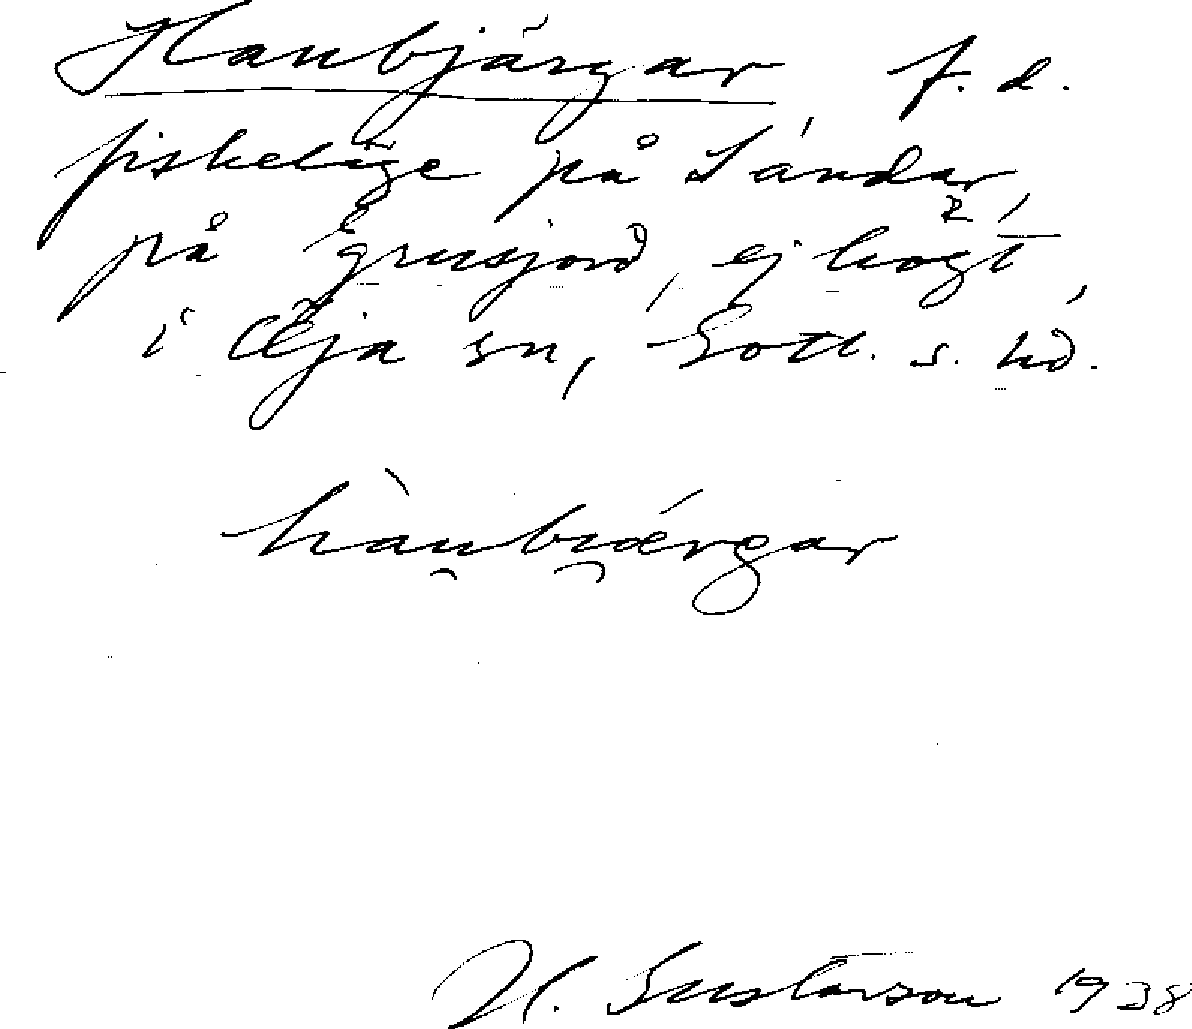 Haubjärgar f. d.
fiskeläge på Sándar,
på grusjord, ej högt,
i Öja sn, Gotl. s. hd.
hàu̯bi̯ǽrgar
H. Gustavson 1938